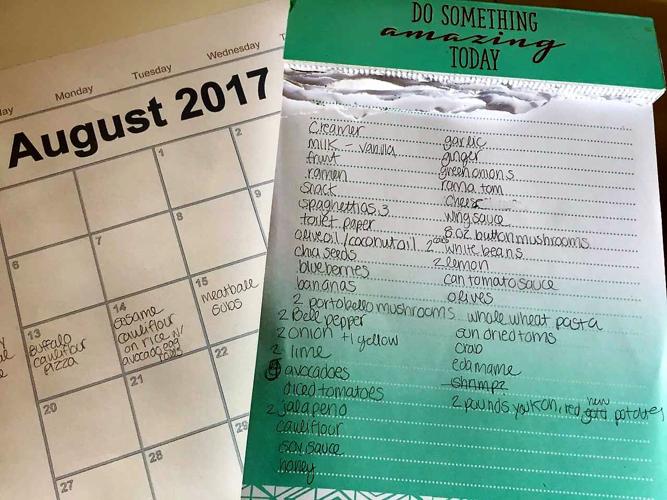 Monday
Tuesday
Wednesday
August 2017
1
2
6
7
8
9
13
Buffalo
cauliflour
pizza
14
sesame
cauliflour
on rice w/
avocado egg
rolls
15
meatball
subs
20
21
22
27
28
DO SOMETHING
amazing
TODAY
creamer
milk - vanilla
fruit
ramen
snack
spaghettios 3
toilet paper
olive oil / coconut oil
chia seeds
blueberries
bananas
2 portobello mushrooms
2 Bell pepper
2 onion + 1 yellow
2 lime
4 avocadoes
diced tomatoes
2 jalapeno
cauliflour
soy sauce
honey
garlic
ginger
green onions
roma tom
cheese
wing sauce
8 oz. button mushrooms
2 cans white beans
2 lemon
can tomato sauce
olives
whole wheat pasta
sun dried toms
crab
edamame
shrimp 2
2 pounds yukon, red, new gold potatoes